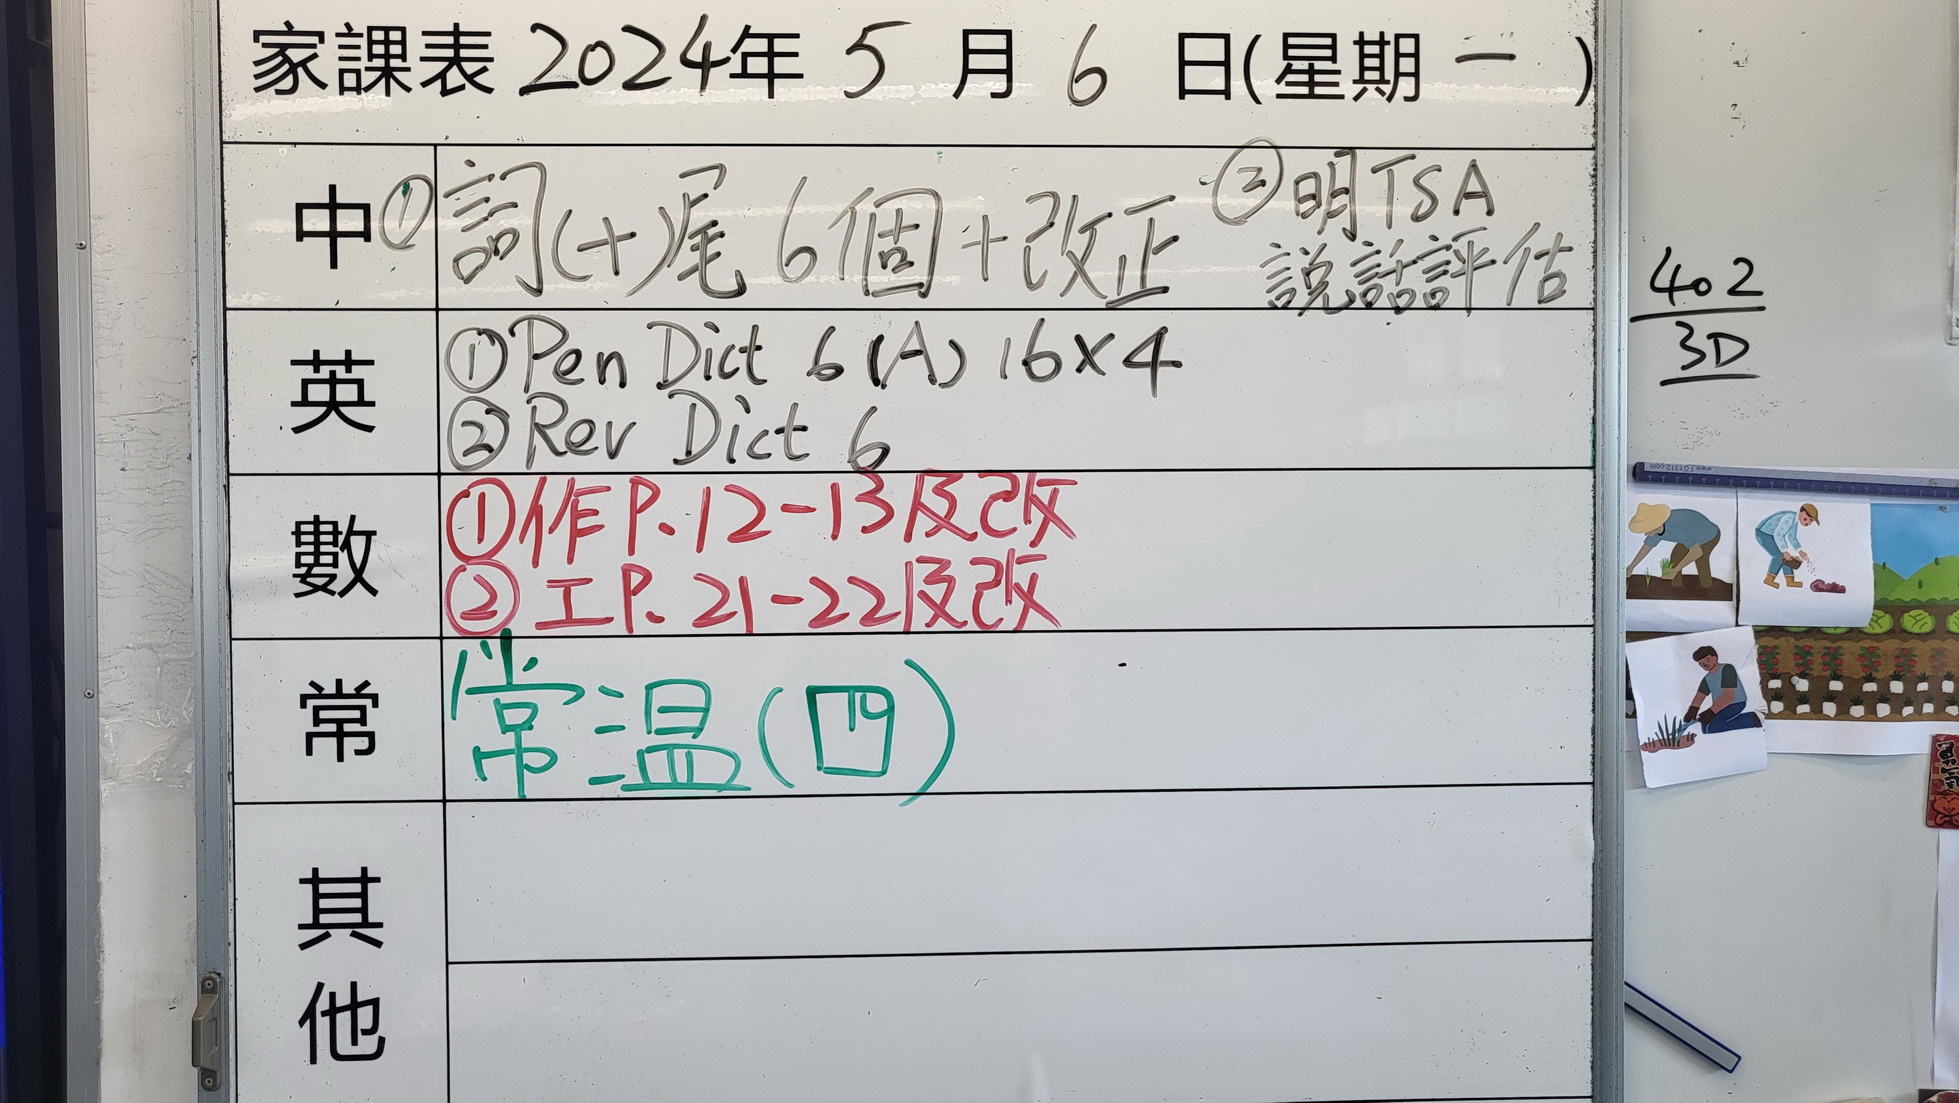 家課表 2024年 5 月 6 日(星期 一 )
中 ① 詞(十)尾 6個+改正 ② 明TSA
說話評估
英 ① Pen Dict 6 (A) 16×4
② Rev Dict 6
數 ① 作 P. 12-13及改
② 工 P. 21-22及改
常 常温(四)
其
他
402
3D